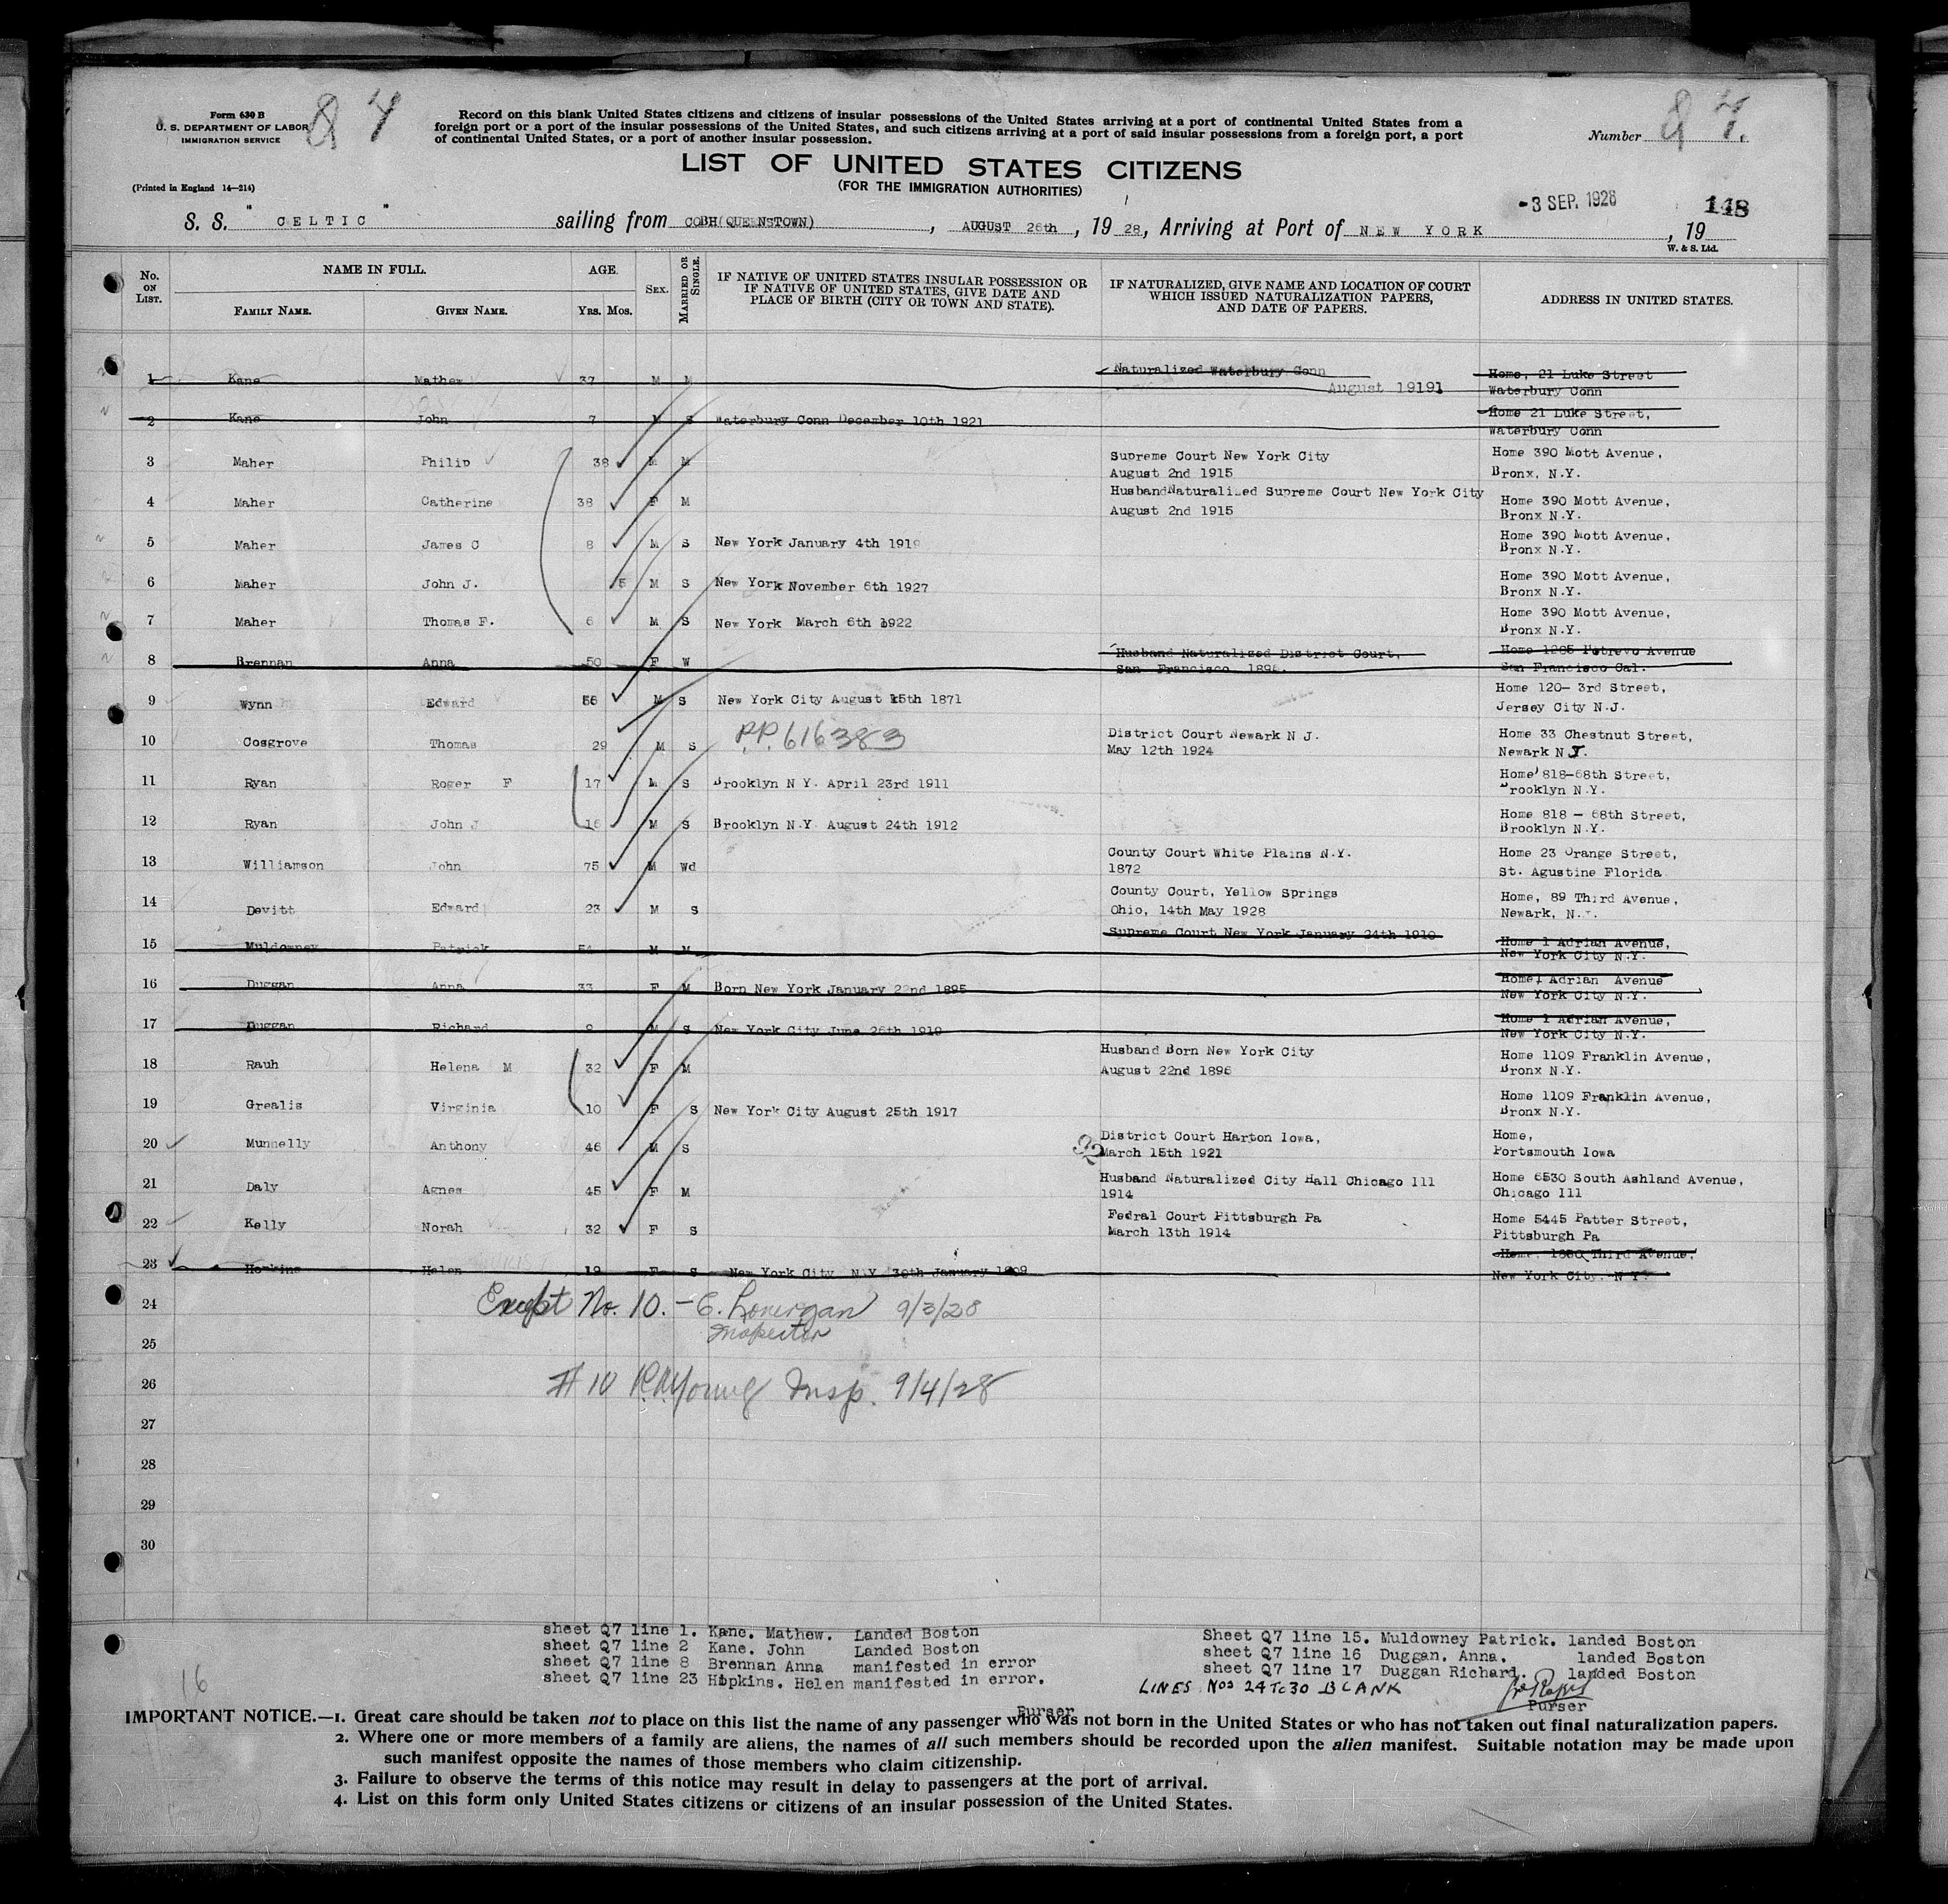 Form 630 B
U. S. DEPARTMENT OF LABOR
IMMIGRATION SERVICE
Q 7
Record on this blank United States citizens and citizens of insular possessions of the United States arriving at a port of continental United States from a
foreign port or a port of the insular possessions of the United States, and such citizens arriving at a port of said insular possessions from a foreign port, a port
of continental United States, or a port of another insular possession.
Number Q 7.
LIST OF UNITED STATES CITIZENS
(FOR THE IMMIGRATION AUTHORITIES)
(Printed in England 14—214)
-3 SEP. 1928
148
S. S. "CELTIC" sailing from COBH(QUEENSTOWN), AUGUST 26th, 1928, Arriving at Port of NEW YORK, 19
W. & S. Ltd.
No. ON LIST. NAME IN FULL. AGE. SEX. MARRIED OR SINGLE. IF NATIVE OF UNITED STATES INSULAR POSSESSION OR IF NATIVE OF UNITED STATES, GIVE DATE AND PLACE OF BIRTH (CITY OR TOWN AND STATE). IF NATURALIZED, GIVE NAME AND LOCATION OF COURT WHICH ISSUED NATURALIZATION PAPERS, AND DATE OF PAPERS. ADDRESS IN UNITED STATES.
FAMILY NAME. GIVEN NAME. YRS. MOS.
1 Kane Mathew 37 M M Naturalized Waterbury Conn August 19191 Home, 21 Luke Street Waterbury Conn
2 Kane John 7 M S Waterbury Conn December 10th 1921 Home 21 Luke Street, Waterbury Conn
3 Maher Philip 38 M M Supreme Court New York City August 2nd 1915 Home 390 Mott Avenue, Bronx, N.Y.
4 Maher Catherine 38 F M HusbandNaturalized Supreme Court New York City August 2nd 1915 Home 390 Mott Avenue, Bronx N.Y.
5 Maher James C 8 M S New York January 4th 1919 Home 390 Mott Avenue, Bronx N.Y.
6 Maher John J. 5 M S New York November 6th 1927 Home 390 Mott Avenue, Bronx N.Y.
7 Maher Thomas F. 6 M S New York March 6th 1922 Home 390 Mott Avenue, Bronx N.Y.
8 Brennan Anna 50 F W Husband Naturalized District Court, San Francisco 1896. Home 1265 Avenue San Francisco Cal.
9 Wynn Edward 56 M S New York City August 15th 1871 Home 120- 3rd Street, Jersey City N.J.
10 Cosgrove Thomas 29 M S P.P. 616383 District Court Newark N J. May 12th 1924 Home 33 Chestnut Street, Newark N J.
11 Ryan Roger F 17 M S Brooklyn N Y. April 23rd 1911 Home 818-68th Street, Brooklyn N.Y.
12 Ryan John J 16 M S Brooklyn N.Y August 24th 1912 Home 818 - 68th Street, Brooklyn N.Y.
13 Williamson John 75 M Wd County Court White Plains N.Y. 1872 Home 23 Orange Street, St. Agustine Florida
14 Devitt Edward 23 M S County Court, Yellow Springs Ohio, 14th May 1928 Home, 89 Third Avenue, Newark, N.J.
15 Muldowney Patrick 54 M M Supreme Court New York January 24th 1910 Home 1 Adrian Avenue, New York City N.Y.
16 Duggan Anna 33 F M Born New York January 22nd 1895 Home1 Adrian Avenue New York City N.Y.
17 Duggan Richard 9 M S New York City June 26th 1919 Home 1 Adrian Avenue, New York City N.Y.
18 Rauh Helena M 32 F M Husband Born New York City August 22nd 1896 Home 1109 Franklin Avenue, Bronx N.Y.
19 Grealis Virginia 10 F S New York City August 25th 1917 Home 1109 Franklin Avenue, Bronx N.Y.
20 Munnelly Anthony 46 M S 92 District Court Harton Iowa, March 15th 1921 Home, Portsmouth Iowa
21 Daly Agnes 45 F M Husband Naturalized City Hall Chicago Ill 1914 Home 6530 South Ashland Avenue, Chicago Ill
22 Kelly Norah 32 F S Fedral Court Pittsburgh Pa March 13th 1914 Home 5445 Patter Street, Pittsburgh Pa
23 Hopkins Helen 19 F S New York City N.Y 30th January 1909 Home, 1880 Third Avenue, New York City. N Y.
24 Except No. 10.- E. Lonergan 9/3/28
Inspector
25
26 # 10 R.A. Young Insp. 9/4/28
27
28
29
30
sheet Q7 line 1. Kane. Mathew. Landed Boston
sheet Q7 line 2 Kane. John Landed Boston
sheet Q7 line 8 Brennan Anna manifested in error
sheet Q7 line 23 Hopkins. Helen manifested in error.
Purser
Sheet Q7 line 15. Muldowney Patrick. landed Boston
sheet Q7 line 16 Duggan. Anna. landed Boston
sheet Q7 line 17 Duggan Richard. landed Boston
LINES Nos 24 To 30 BLANK
Purser
16
IMPORTANT NOTICE.—1. Great care should be taken not to place on this list the name of any passenger who was not born in the United States or who has not taken out final naturalization papers.
2. Where one or more members of a family are aliens, the names of all such members should be recorded upon the alien manifest. Suitable notation may be made upon
such manifest opposite the names of those members who claim citizenship.
3. Failure to observe the terms of this notice may result in delay to passengers at the port of arrival.
4. List on this form only United States citizens or citizens of an insular possession of the United States.